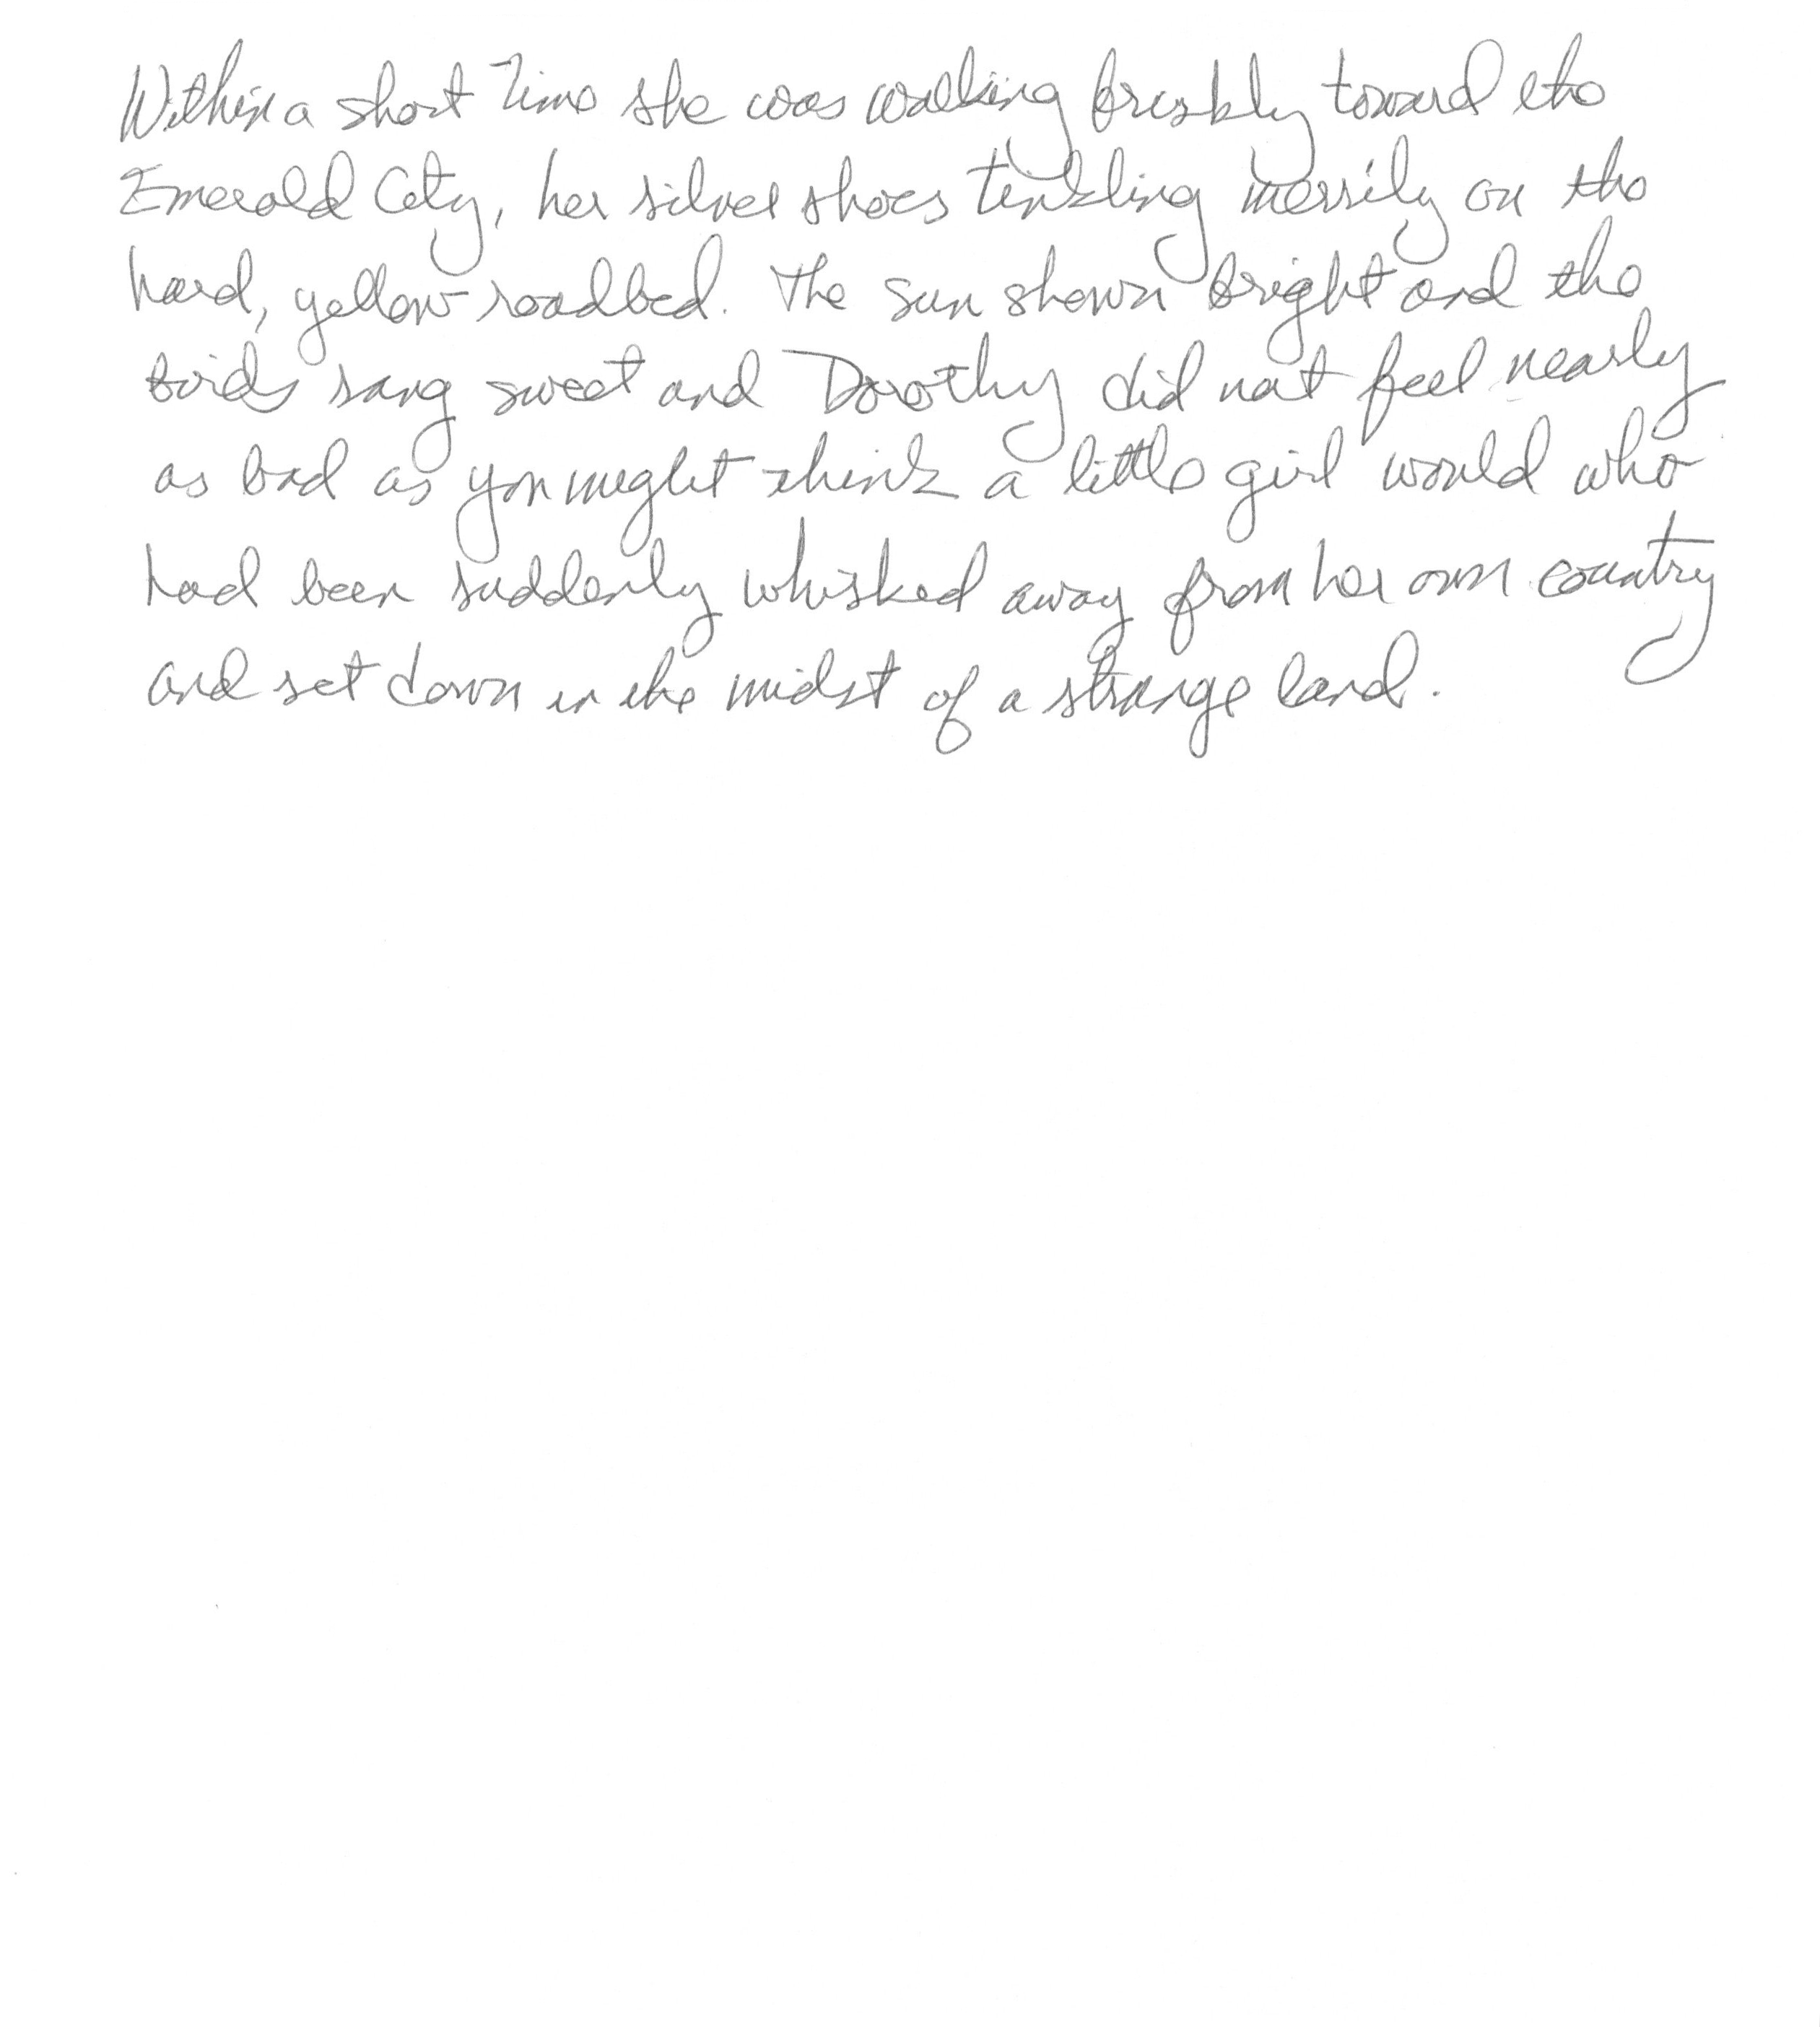 Within a short time she was walking briskly toward the
Emerald City, her silver shoes tinkling merrily on the
hard, yellow roadbed. The sun shown bright and the
birds sang sweet and Dorothy did not feel nearly
as bad as you might think a little girl would who
had been suddenly whisked away from her own country
and set down in the midst of a strange land.